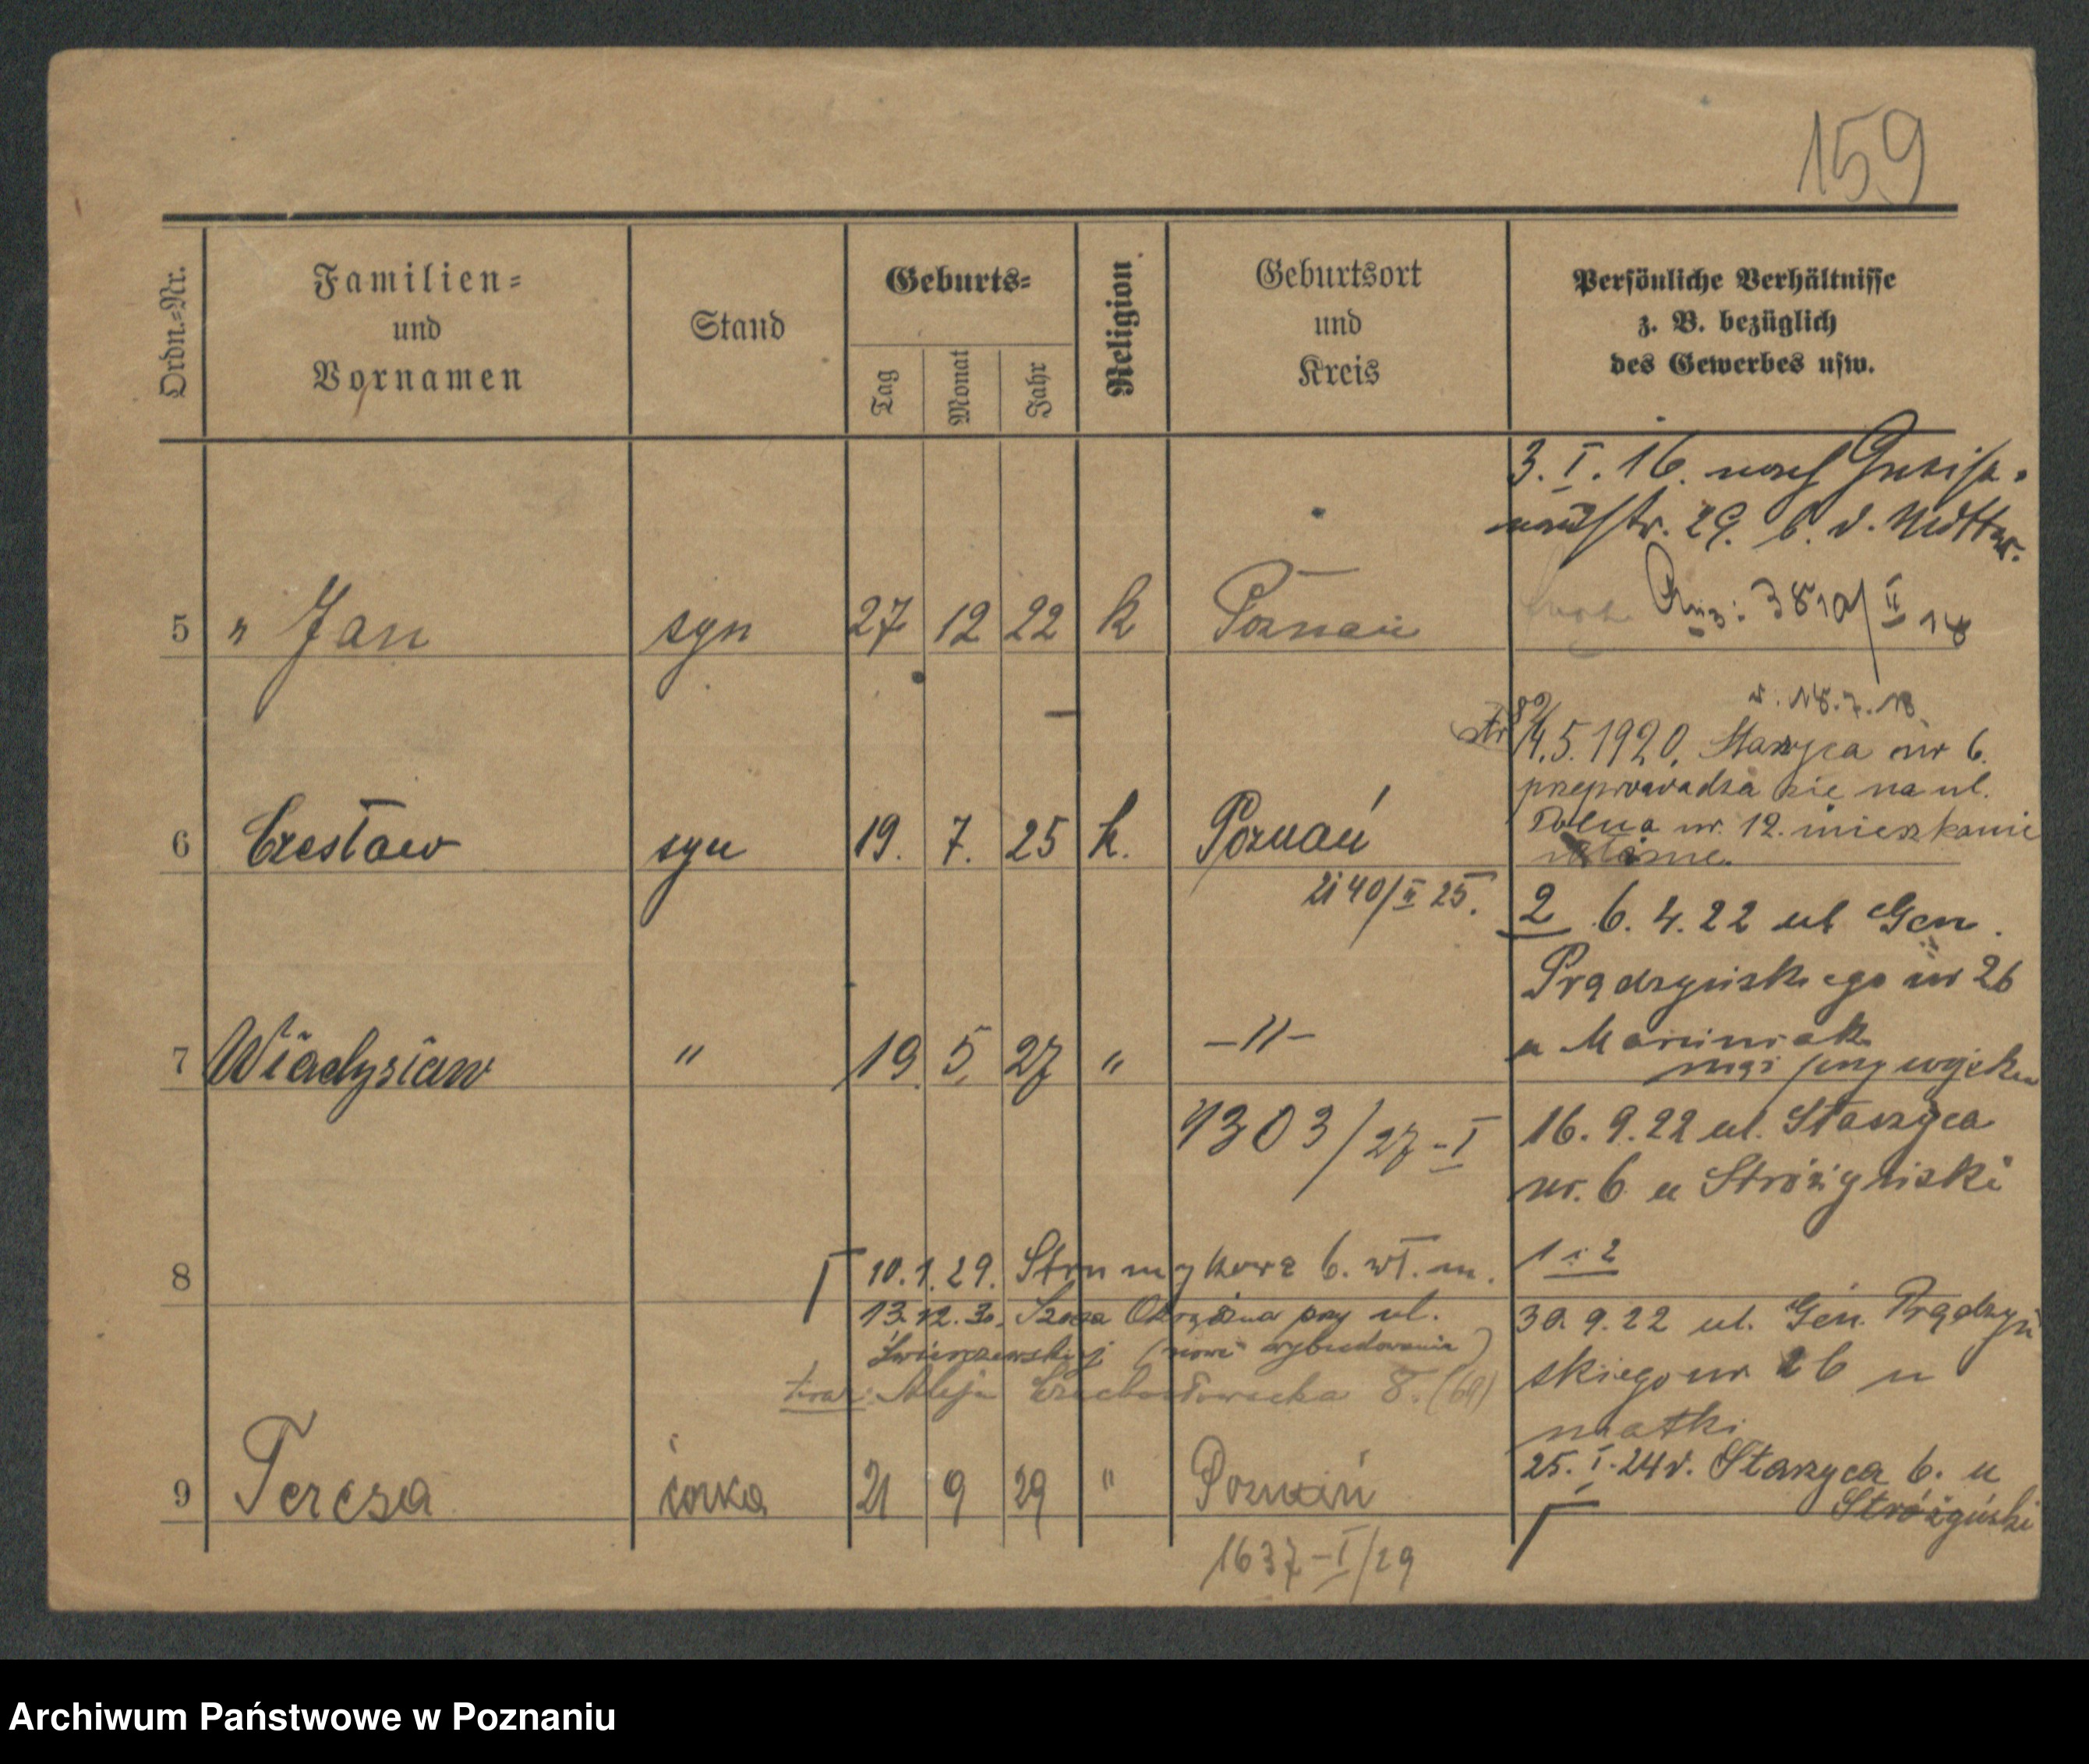 159
Ordn.-Nr.
Familien-
und
Vornamen
Stand
Geburts-
Tag
Monat
Jahr
Religion
Geburtsort
und
Kreis
Persönliche Verhältnisse
z. B. bezüglich
des Gewerbes usw.
3. I. 16. nach Gneise-
naustr. 29. b. d. Mutter.
5 " Jan syn 27 12 22 k Poznań
3810/II 18
v. 18.7.18.
14.5.1920. Staszyca nr 6.
przeprowadza się na ul.
Polna nr. 12. mieszkanie
własne.
6 Czesław syn 19. 7. 25 k. Poznań
2140/II 25.
2 6. 4. 22 ul Gen.
Prądzyńskiego nr 26
u Marciniak
7 Władysław " 19. 5. 27 " -"-
1303/27-I
16. 9. 22 ul. Staszyca
nr. 6 u Stróżyński
1 i 2
8
10.1.29. Strumykowa 6. wł. m.
13.12.30. Szosa Okrężna przy ul.
Świerczewskiej (nowe wybudowania)
teraz: Aleja Czechosłowacka 8. (69)
30. 9. 22 ul. Gen. Prądzyń
skiego nr 26 u
matki
25. I. 24 v. Staszyca 6. u
Stróżyński
9 Teresa córka 21 9 29 " Poznań
1637-I/29
Archiwum Państwowe w Poznaniu